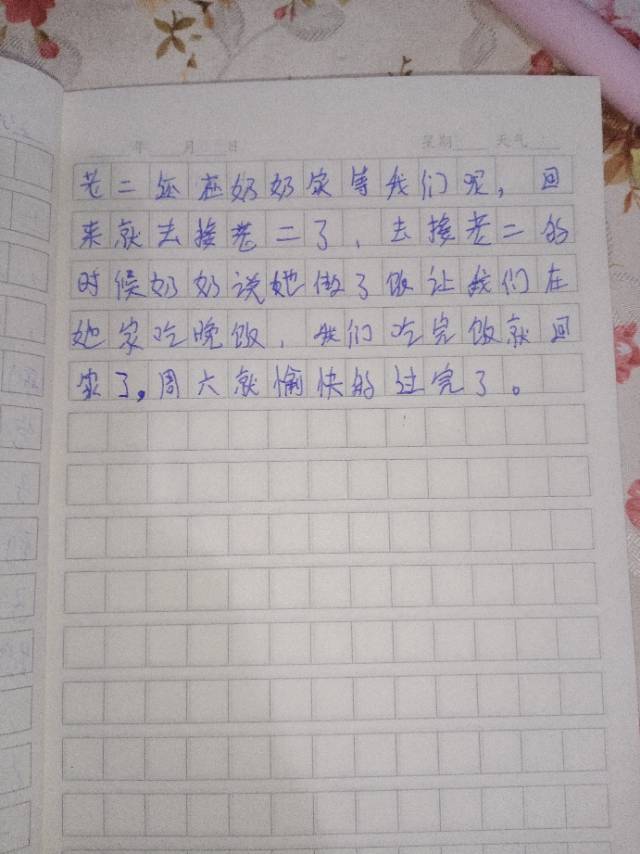 年 月 日 星期 天气
老二还在奶奶家等我们呢，回
来就去接老二了，去接老二的
时候奶奶说她做了饭让我们在
她家吃晚饭，我们吃完饭就回
家了，周六就愉快的过完了。